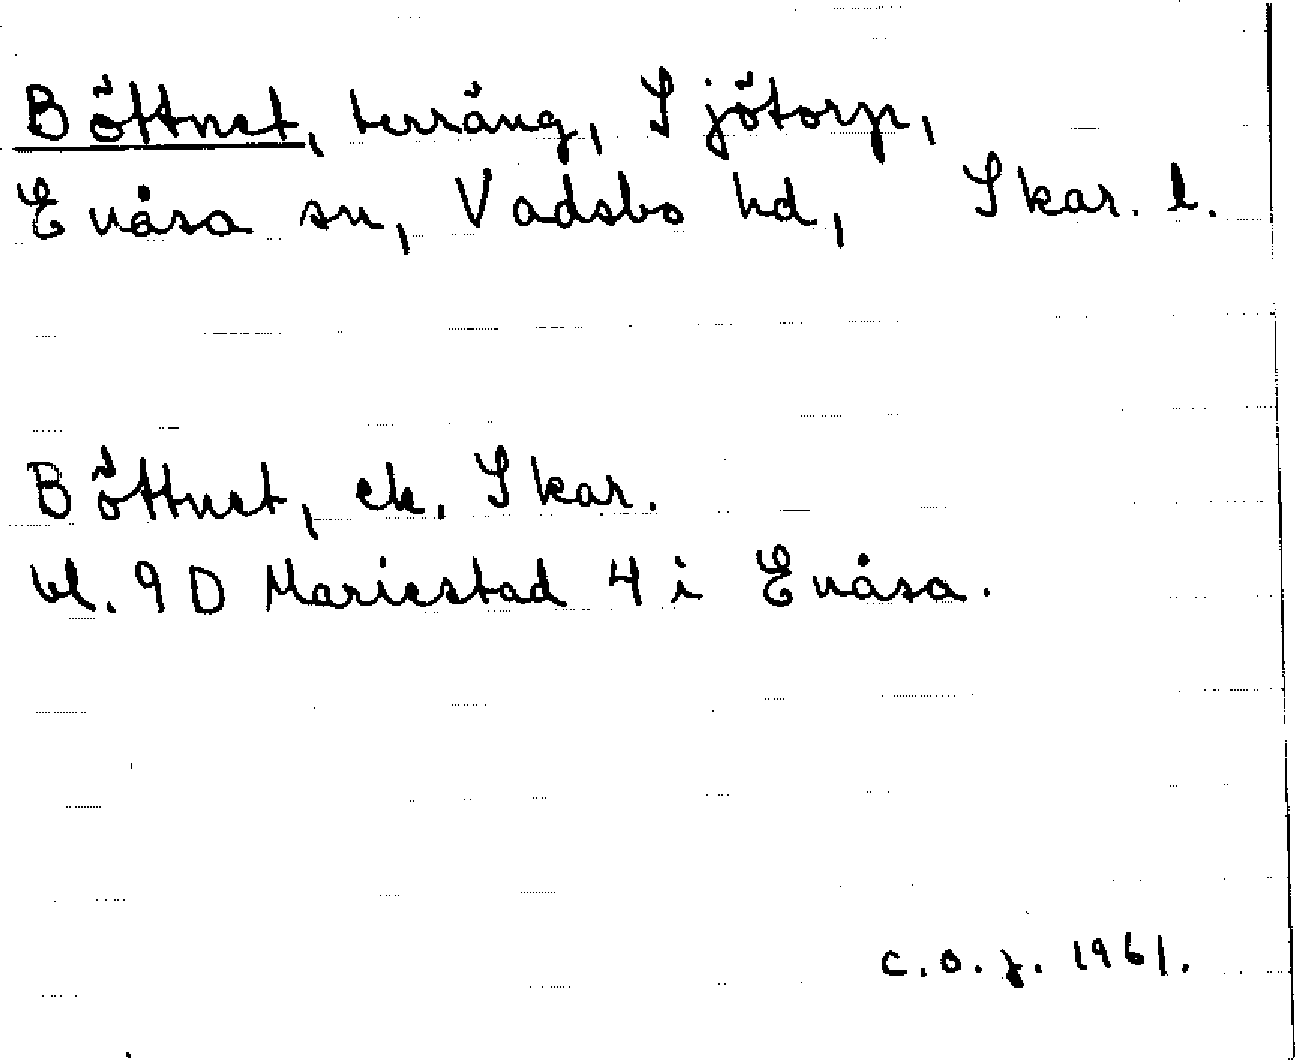 Böttnet, terräng, Sjötorp,
Enåsa sn, Vadsbo hd, Skar. l.
Böttnet, ek. Skar.
bl. 9 D Mariestad 4 i Enåsa.
C. O. J. 1961.